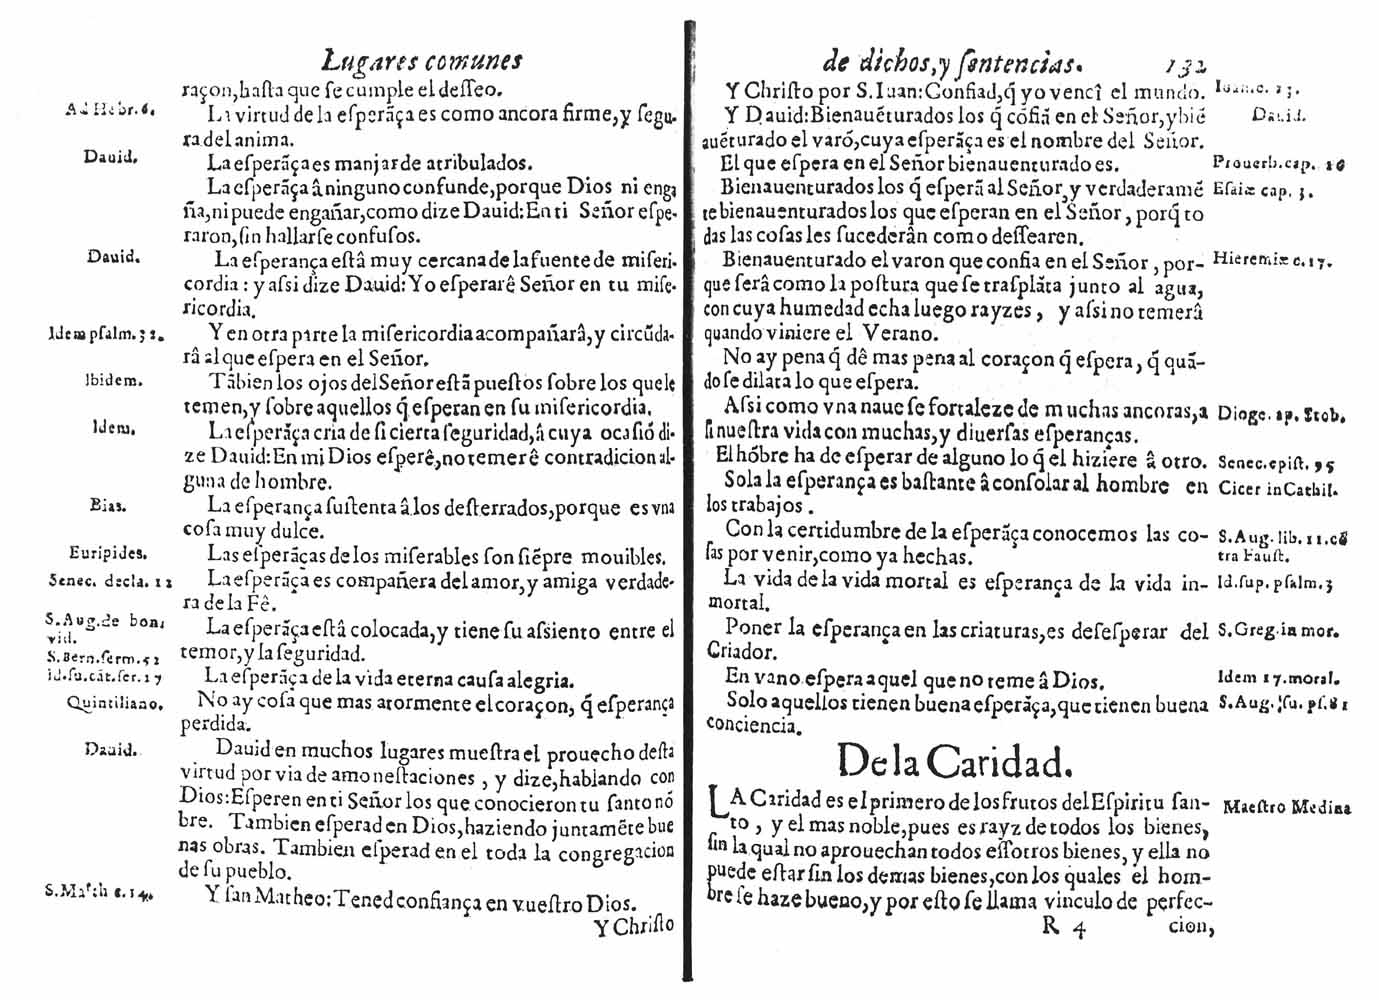 Lugares comunes
raçon, hasta que se cumple el desseo.
Ad Hebr. 6.
La virtud de la esperãça es como ancora firme, y segu-
ra del anima.
Dauid.
La esperãça es manjar de atribulados.
La esperãça â ninguno confunde, porque Dios ni enga
ña, ni puede engañar, como dize Dauid: En ti Señor espe-
raron, sin hallarse confusos.
Dauid.
La esperança estâ muy cercana de la fuente de miseri-
cordia: y assi dize Dauid: Yo esperarê Señor en tu mise-
ricordia.
Idem psalm. 32.
Y en otra parte la misericordia acompañarâ, y circũda-
râ al que espera en el Señor.
Ibidem.
Tãbien los ojos del Señor estã puestos sobre los que le
temen, y sobre aquellos q̃ esperan en su misericordia.
Idem.
La esperãça cria de si cierta seguridad, â cuya ocasiõ di-
ze Dauid: En mi Dios esperê, no temerê contradicion al-
guna de hombre.
Bias.
La esperança sustenta â los desterrados, porque es vna
cosa muy dulce.
Euripides.
Las esperãças de los miserables son siẽpre mouibles.
Senec. decla. 12
La esperãça es compañera del amor, y amiga verdade-
ra de la Fê.
S. Aug. de bon.
vid.
La esperãça estâ colocada, y tiene su assiento entre el
temor, y la seguridad.
S. Bern. serm. 52
id. su. cãt. ser. 17
La esperãça de la vida eterna causa alegria.
Quintiliano.
No ay cosa que mas atormente el coraçon, q̃ esperança
perdida.
Dauid.
Dauid en muchos lugares muestra el prouecho desta
virtud por via de amonestaciones, y dize, hablando con
Dios: Esperen en ti Señor los que conocieron tu santo nõ
bre. Tambien esperad en Dios, haziendo juntamẽte bue
nas obras. Tambien esperad en el toda la congregacion
de su pueblo.
S. Math c. 14.
Y san Matheo: Tened confiança en vuestro Dios.
Y Christo
de dichos, y sentencias. 132
Y Christo por S. Iuan: Confiad, q̃ yo vencî el mundo.
Y Dauid: Bienauẽturados los q̃ cõfiã en el Señor, y biẽ
Dauid.
auẽturado el varõ, cuya esperãça es el nombre del Señor.
El que espera en el Señor bienauenturado es.
Prouerb. cap. 16
Bienauenturados los q̃ esperã al Señor, y verdaderamẽ
Esaiæ cap. 3.
te bienauenturados los que esperan en el Señor, porq̃ to
das las cosas les sucederân como dessearen.
Bienauenturado el varon que confia en el Señor, por-
Hieremiæ c. 17.
que serâ como la postura que se trasplãta junto al agua,
con cuya humedad echa luego rayzes, y assi no temerâ
quando viniere el Verano.
No ay pena q̃ dê mas pena al coraçon q̃ espera, q̃ quã-
do se dilata lo que espera.
Assi como vna naue se fortaleze de muchas ancoras, a
Dioge. ap. Stob.
si nuestra vida con muchas, y diuersas esperanças.
El hõbre ha de esperar de alguno lo q̃ el hiziere â otro.
Senec. epist. 95
Sola la esperança es bastante â consolar al hombre en
Cicer in Cathil.
los trabajos.
Con la certidumbre de la esperãça conocemos las co-
S. Aug. lib. 11. cõ
sas por venir, como ya hechas.
tra Faust.
La vida de la vida mortal es esperança de la vida in-
Id. sup. psalm. 3
mortal.
Poner la esperança en las criaturas, es desesperar del
S. Greg. in mor.
Criador.
En vano espera aquel que no teme â Dios.
Idem 17. moral.
Solo aquellos tienen buena esperãça, que tienen buena
S. Aug. su. ps. 81
conciencia.
De la Caridad.
LA Caridad es el primero de los frutos del Espiritu san-
Maestro Medina
to, y el mas noble, pues es rayz de todos los bienes,
sin la qual no aprouechan todos essotros bienes, y ella no
puede estar sin los demas bienes, con los quales el hom-
bre se haze bueno, y por esto se llama vinculo de perfec-
R 4 cion,